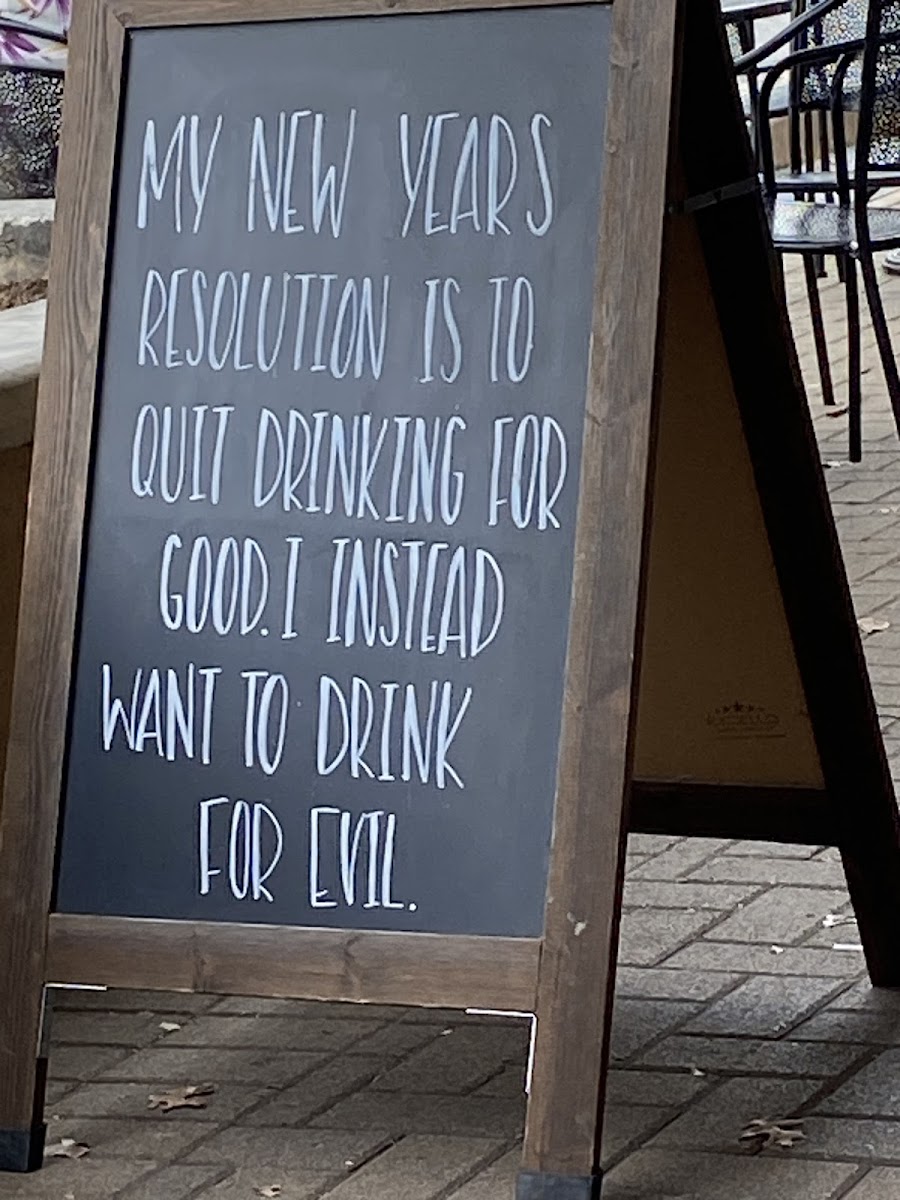 MY NEW YEARS
RESOLUTION IS TO
QUIT DRINKING FOR
GOOD. I INSTEAD
WANT TO DRINK
FOR EVIL.